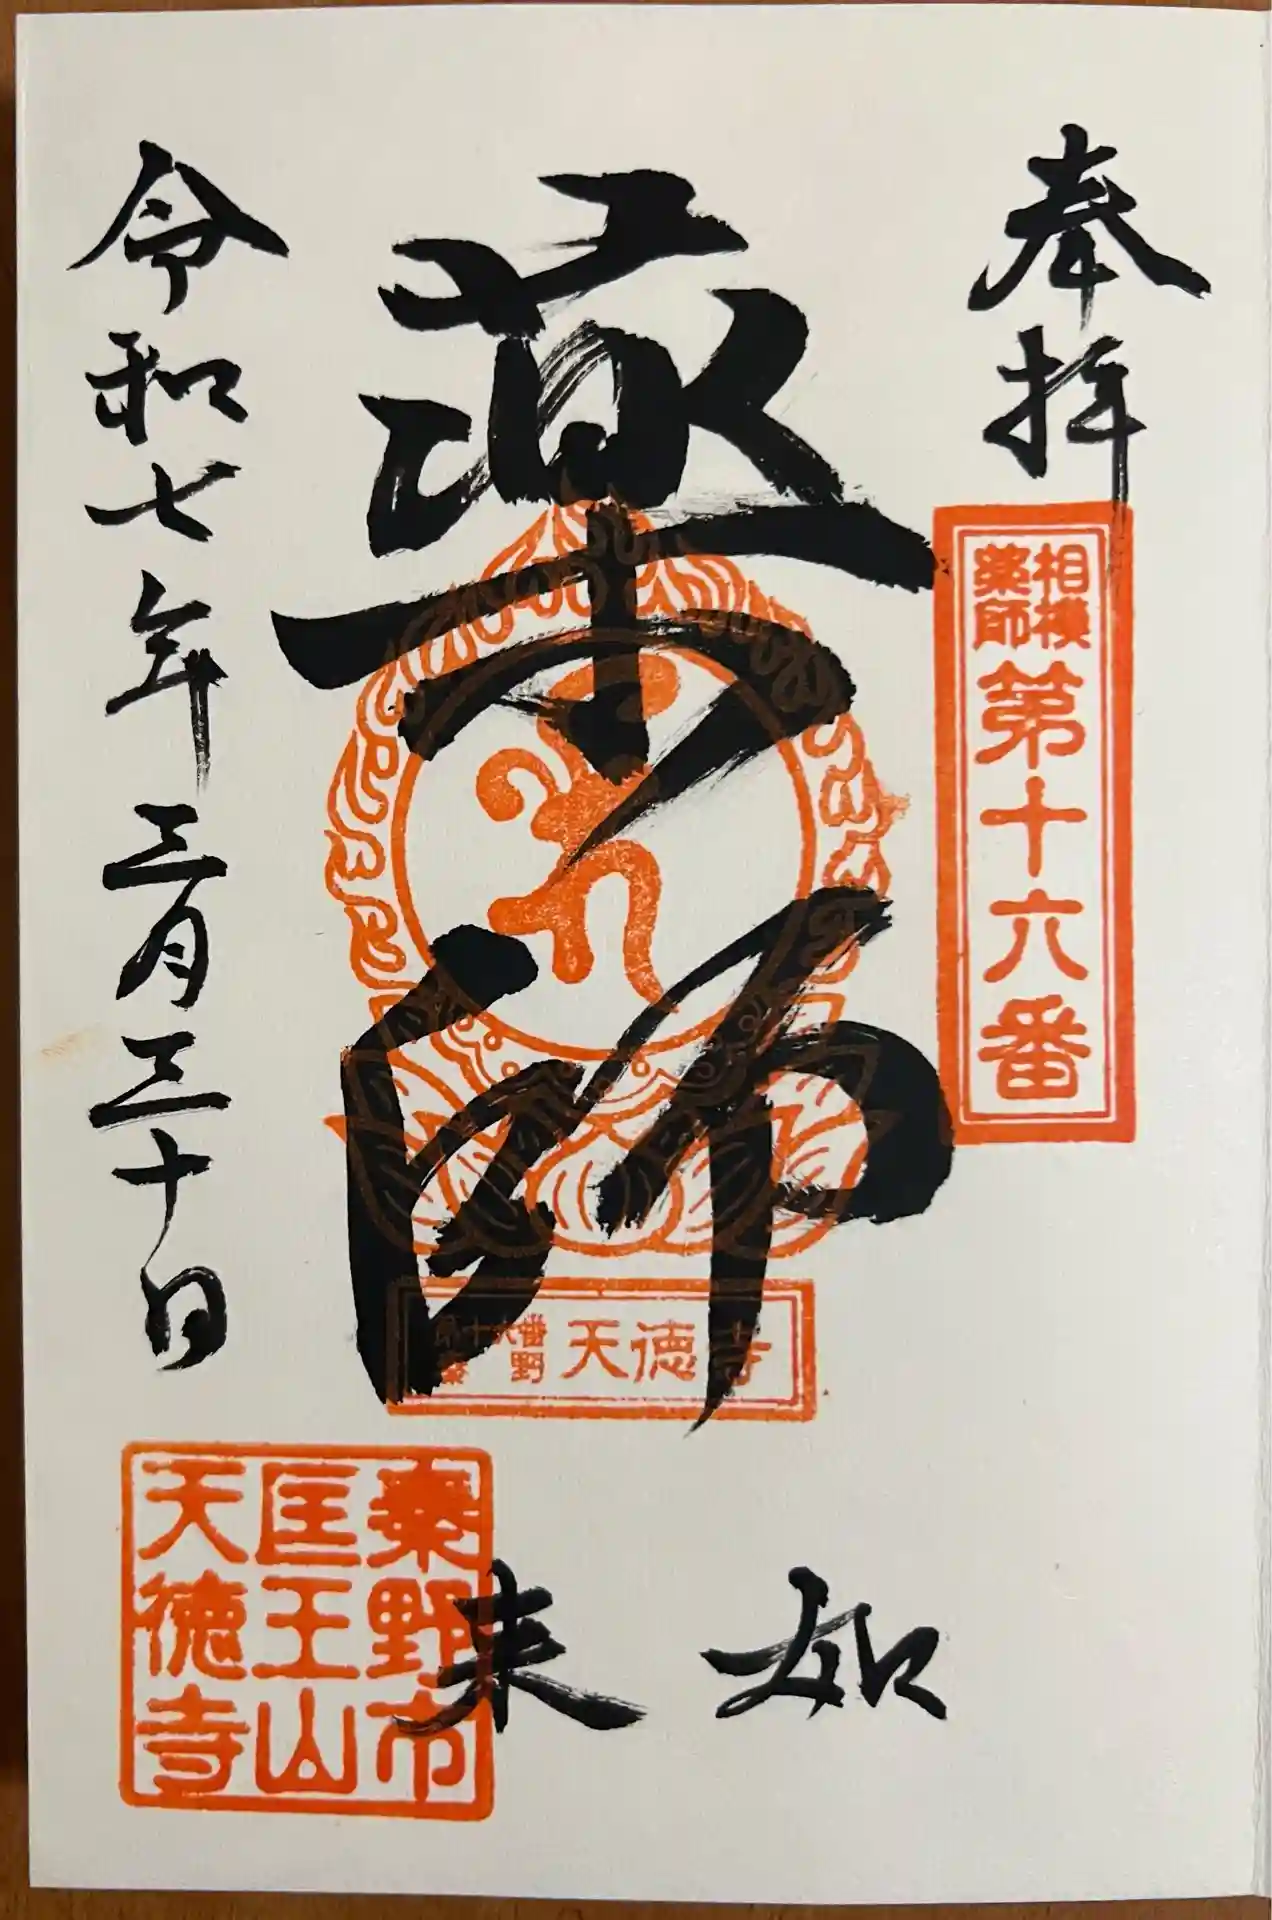 奉拝
相模
薬師
第十六番
薬師
如来
第十六番
秦野
天徳寺
令和七年三月三十日
秦野市
匡王山
天徳寺